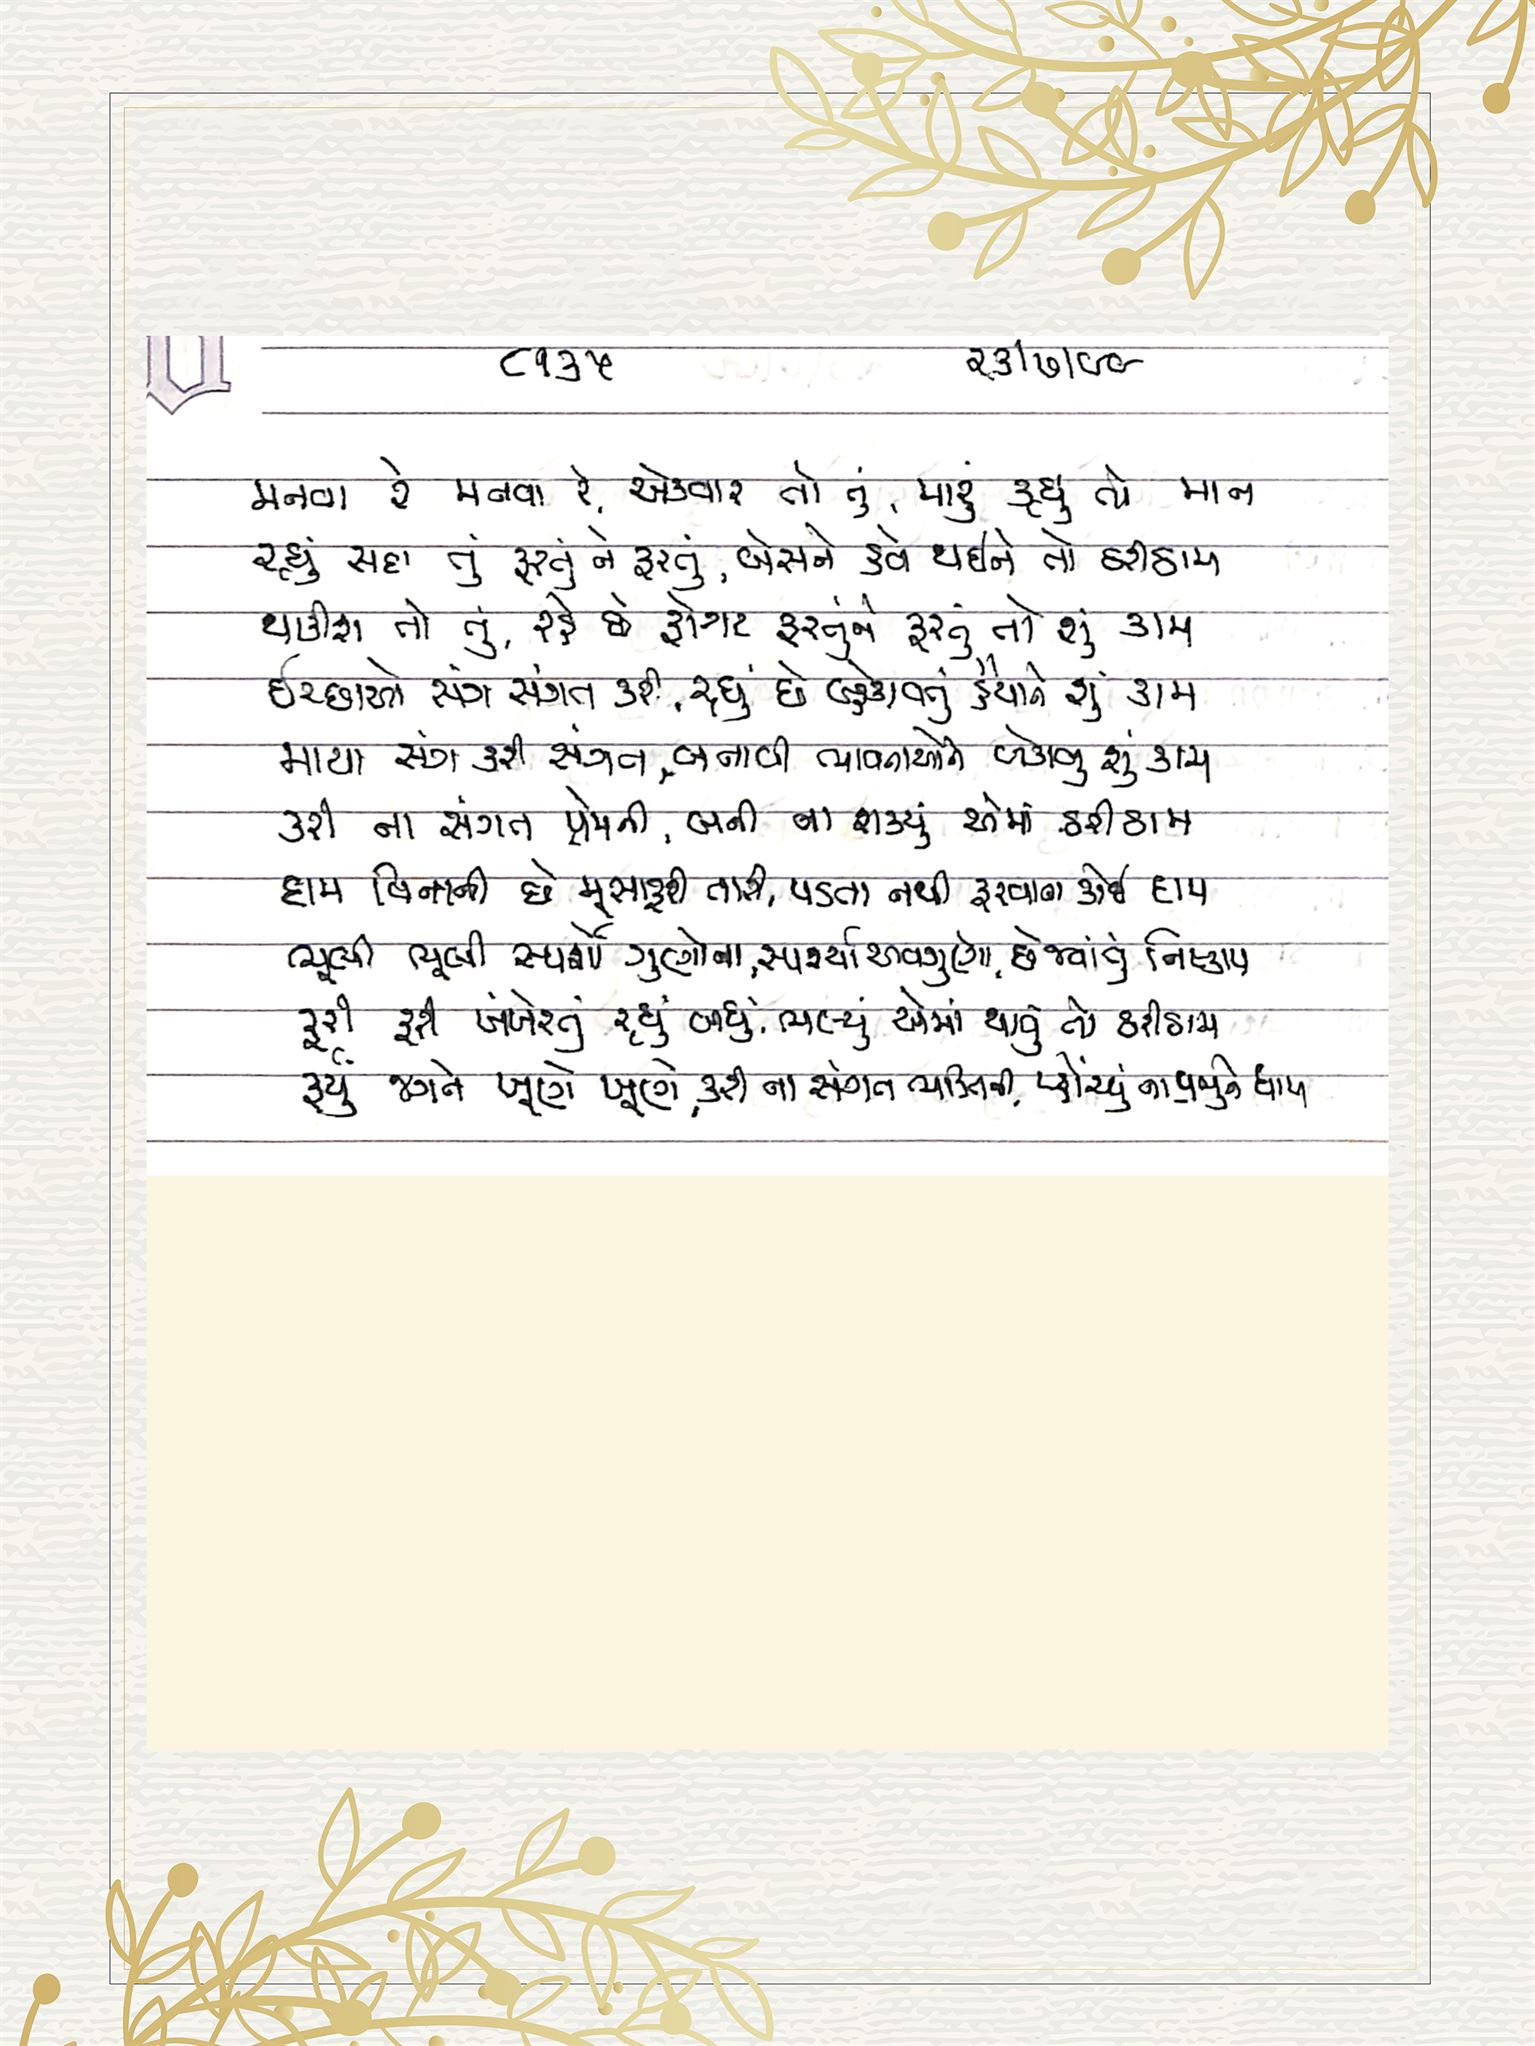 ૮૧૩૫ ૨૩/૭/૯૯
મનવા રે મનવા રે, એકવાર તો તું, મારું કહ્યું તો માન
રહ્યું સદા તું ફરતું ને ફરતું, બેસને હવે થઈને તો ઠરીઠામ
થાકીશ તો તું, રહે છે ફોગટ ફરતુંને ફરતું તો શું કામ
ઈચ્છાઓ સંગ સંગત કરી, રહ્યું છે બહેકાવતું હૈયાને શું કામ
માયા સંગ કરી સંગત, બનાવી ભાવનાઓને બેકાબુ શું કામ
કરી ના સંગત પ્રેમની, બની ના શક્યું એમાં ઠરીઠામ
દામ વિનાની છે મૂસાફરી તારી, પડતા નથી ફરવાના કોઈ દામ
ભૂલી ભૂલી સ્પર્શો ગુણોના, સ્પર્શ્યા અવગુણો, છે જ્યાં તું નિષ્કામ
ફરી ફરી ખંખેરતું રહ્યું બધું, ભૂલ્યું એમાં થાવું તો ઠરીઠામ
ફર્યું જગને ખૂણે ખૂણે, કરી ના સંગત ભક્તિની, પ્હોંચ્યું ના પ્રભુને ધામ